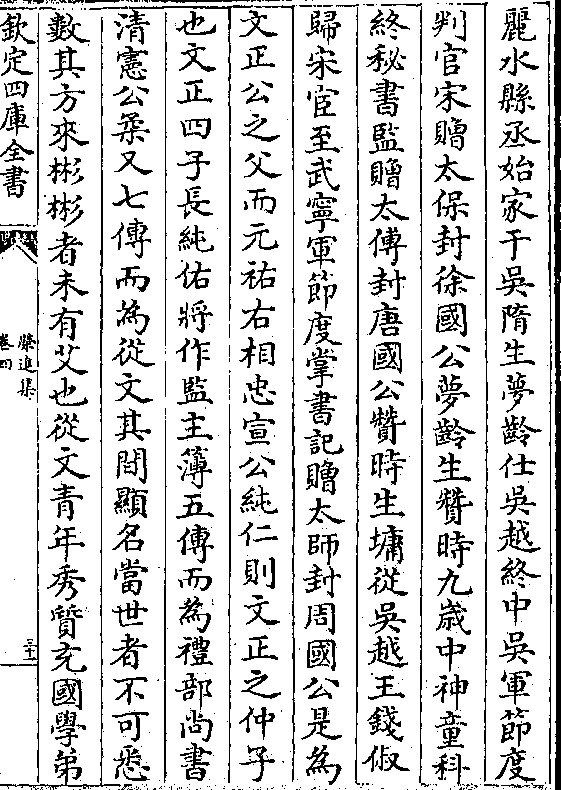 麗水縣丞始家于吳隋生夢齡仕吳越終中吳軍節度
判官宋贈太保封徐國公夢齡生贊時九歲中神童科
終秘書監贈太傅封唐國公贊時生墉從吳越王錢俶
歸宋官至武寧軍節度掌書記贈太師封周國公是為
文正公之父而元祐右相忠宣公純仁則文正之仲子
也文正四子長純佑將作監主簿五傳而為禮部尚書
清憲公棐又七傳而為從文其間顯名當世者不可悉
數其方來彬彬者未有艾也從文青年秀質充國學弟
欽定四庫全書
卷四
三十一